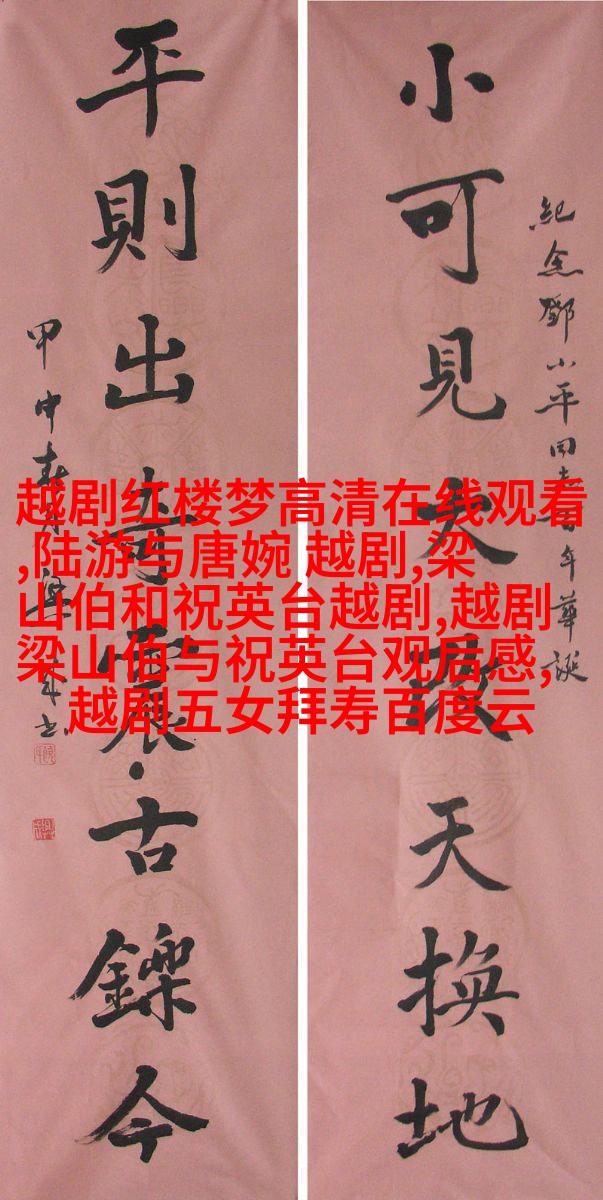 小可見大改天換地
紀念鄧小平同志百年華誕
平則出奇震古鑠今
甲申春月
越剧红楼梦高清在线观看
,陆游与唐婉 越剧,梁
山伯和祝英台越剧,越剧
梁山伯与祝英台观后感,
越剧五女拜寿百度云